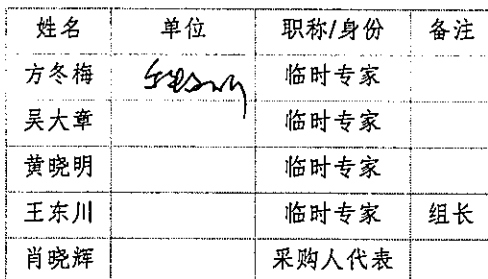 姓名 单位 职称/身份 备注
方冬梅 临时专家
吴大章 临时专家
黄晓明 临时专家
王东川 临时专家 组长
肖晓辉 采购人代表